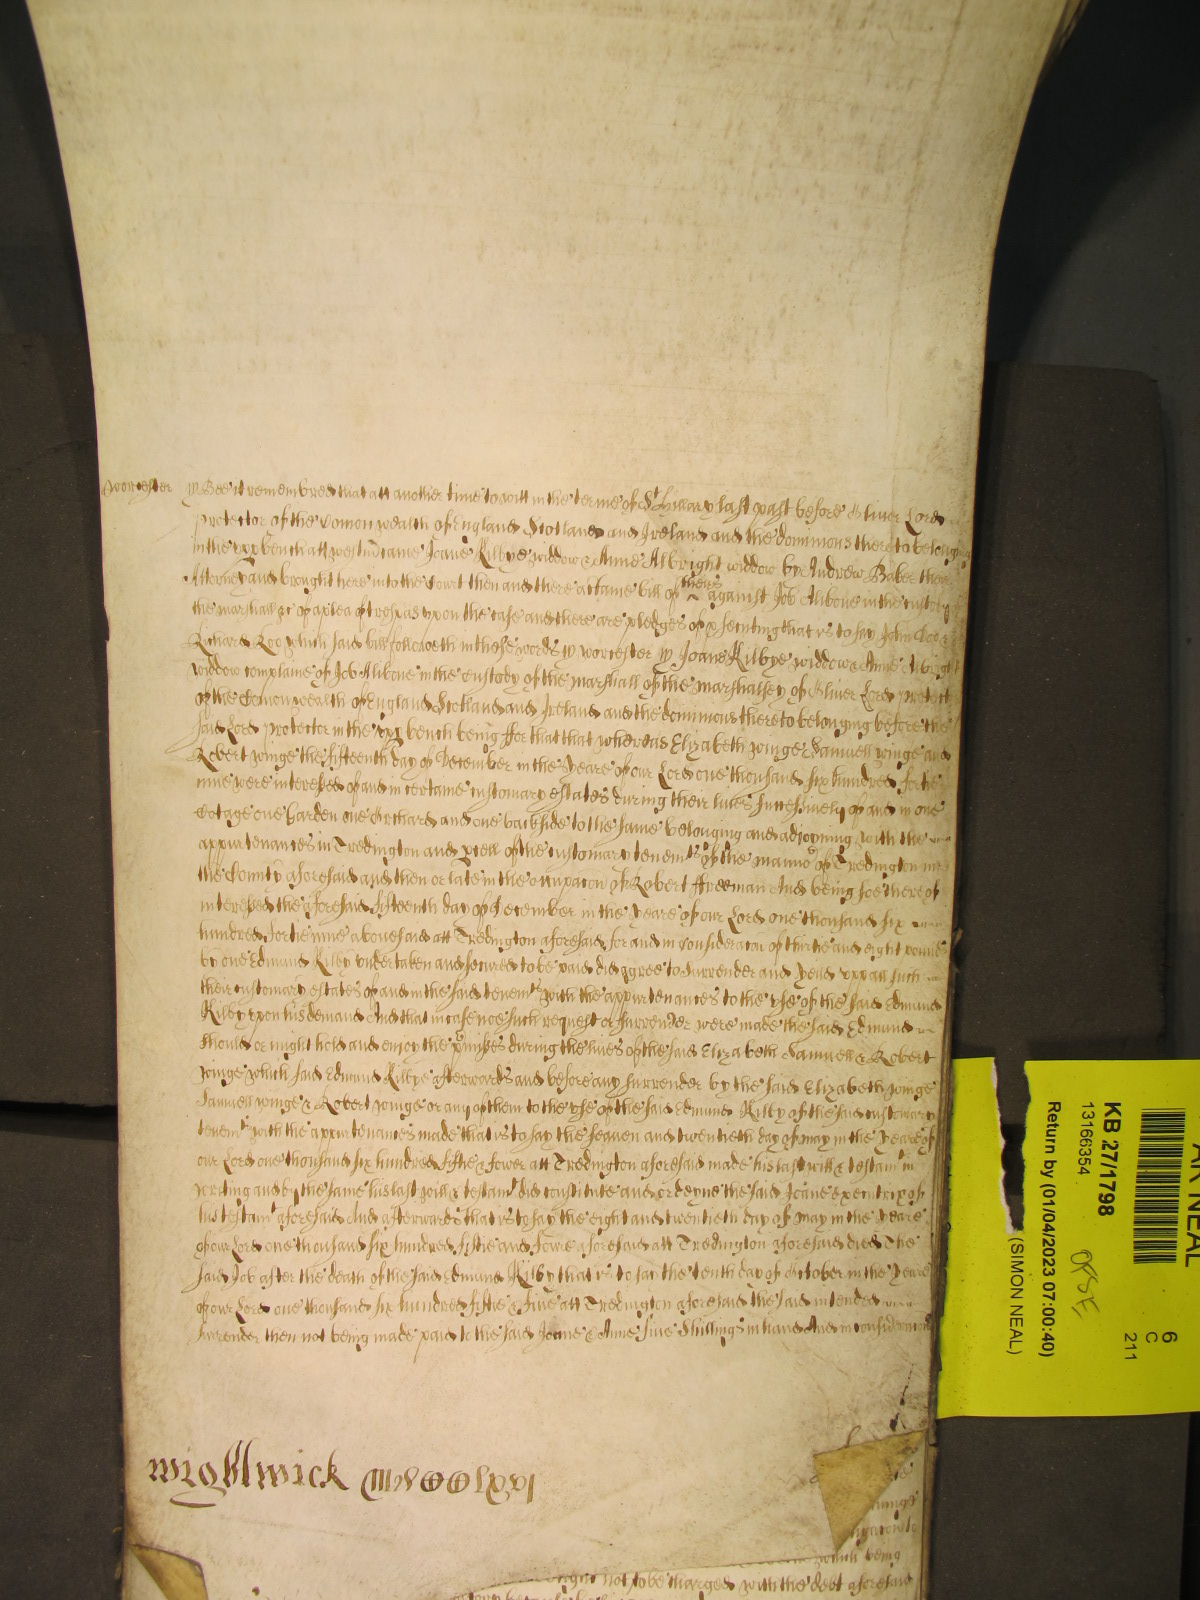 Worcester
Bee it remembred that att another time to witt in the terme of St Hillary last past before Oliver Lord
protector of the Comon wealth of England Scotland and Ireland and the dominions thereto belonging
in the vpp bench att westm came Joane Kilbye widdow & Anne Albright widdow by Andrew Baker their
Attorney and brought here into the Court then and there a certame bill of theirs against Job Alibone in the custody of
the marshall &c of a plea of trespas vpon the case and there are pledges of psecuting that is to say John Doe &
Richard Roo which said bill followeth in these words Worcester Joane Kilbye widdow & Anne Albright
widdow complaine of Job Alibone in the custody of the marshall of the marshalsey of Oliver Lord protector
of the Comon wealth of England Scotland and Ireland and the dominions thereto belonging before the
said Lord protector in the vpp bench being ffor that that whereas Elizabeth Winge Samuell Winge and
Robert Winge the fifteenth day of December in the yeare of our Lord one thousand six hundred fortie
nine were interessed of and in certaine customary estates during their lives successively of and in one
Cotage one Garden one Orchard and one backside to the same belonging and adjoyning with the
appurtenances in Tredington and pcell of the customary tenemts of the mannor of Tredington in
the County aforesaid and then or late in the occupacon of Robert ffreeman And being soe thereof
interessed the aforesaid fifteenth day of December in the yeare of our Lord one thousand six
hundred fortie nine abovesaid att Tredington aforesaid for and in consideracon of thirtie and eight pounds
by one Edmund Kilby vndertaken and secured to be paid did agree to surrender and yeild vpp all such
their customary estates of and in the said tenemts with the appurtenances to the vse of the said Edmund
Kilby vpon his demand And that in case noe such request or surrender were made the said Edmund
should or might hold and enjoy the pmisses during the lives of the said Elizabeth Samuell & Robert
Winge which said Edmund Kilbye afterwards and before any surrender by the said Elizabeth Winge
Samuell Winge & Robert Winge or any of them to the vse of the said Edmund Kilby of the said customary
tenemts with the appurtenances made that is to say the seaven and twentieth day of May in the yeare of
our Lord one thousand six hundred fiftie & fower att Tredington aforesaid made his last will & testamt in
writing and by the same his last will & testamt did constitute and ordeyne the said Joane executrix of
his testamt aforesaid And afterwards that is to say the eight and twentieth day of May in the yeare
of our Lord one thousand six hundred fiftie and fowre aforesaid att Tredington aforesaid died The
said Job after the death of the said Edmund Kilby that is to say the tenth day of October in the yeare
of our Lord one thousand six hundred fiftie & five att Tredington aforesaid the said intended
surrender then not being made paid to the said Joane & Anne five shillings in hand And in consideracon
Wightwick
which being
not to be charged with the debt aforesaid
KB 27/1798
13166354
Return by (01/04/2023 07:00:40)
(SIMON NEAL)
NEAL
6
C
211